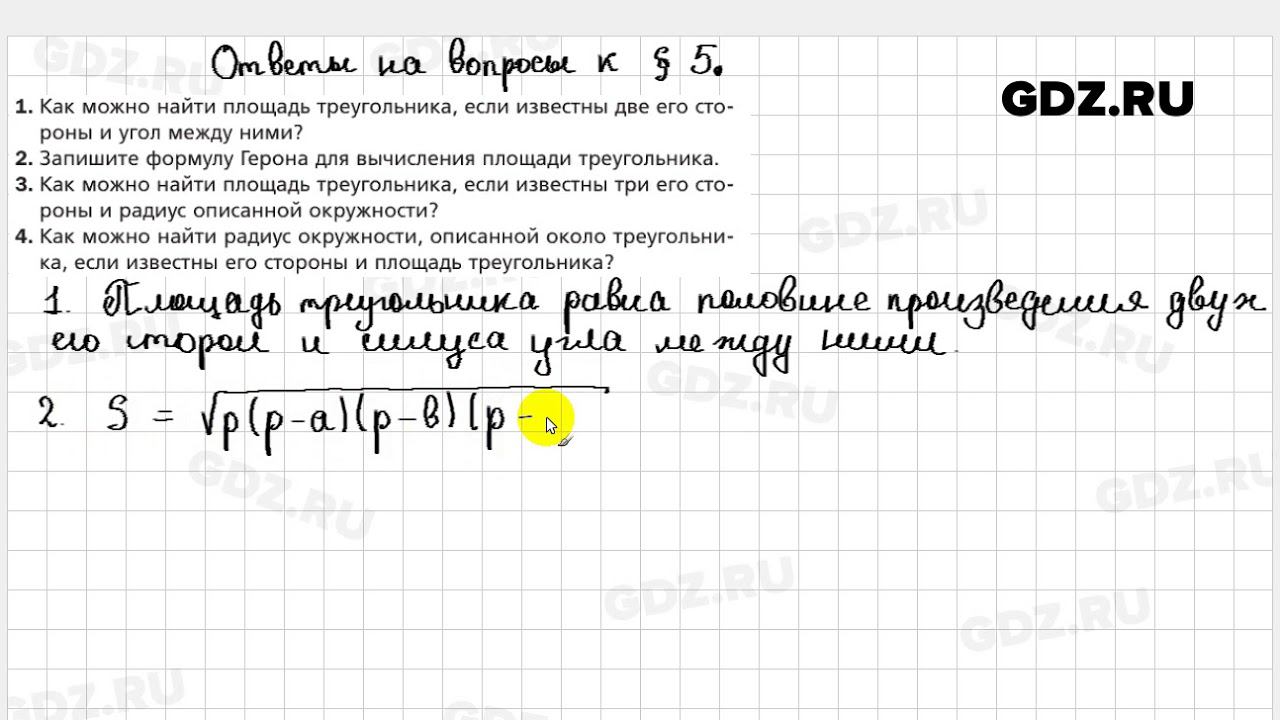 Ответы на вопросы к § 5.
GDZ.RU
1. Как можно найти площадь треугольника, если известны две его сто-
роны и угол между ними?
2. Запишите формулу Герона для вычисления площади треугольника.
3. Как можно найти площадь треугольника, если известны три его сто-
роны и радиус описанной окружности?
4. Как можно найти радиус окружности, описанной около треугольни-
ка, если известны его стороны и площадь треугольника?
1. Площадь треугольника равна половине произведения двух
его сторон и синуса угла между ними.
2. S = √p(p-a)(p-b)(p-
GDZ.RU
GDZ.RU
GDZ.RU
GDZ.RU
GDZ.RU
GDZ.RU
GDZ.RU
GDZ.RU
GDZ.RU
GDZ.RU
GDZ.RU
GDZ.RU